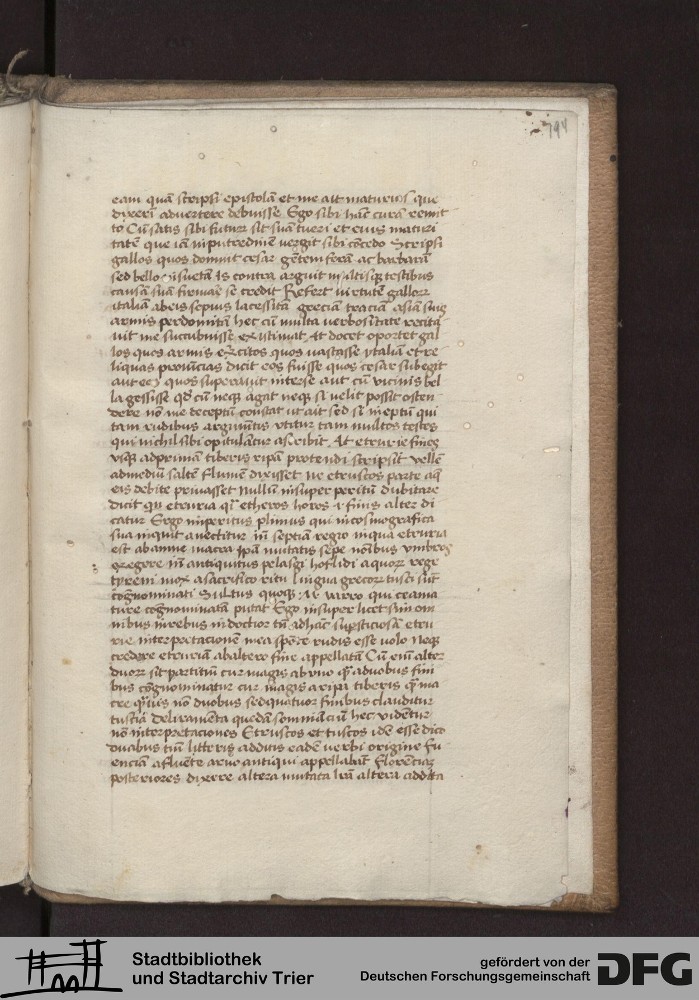 194
eam quā scripsi epistolā et me ait maturius que
dixeri advertere debuisse Ego sibi hāc curā remit
to Cū satis sibi futur sit suā tueri et eius maturi
tatē que iā in putredinē vergit sibi cōcedo Scripsi
gallos quos domuit cesar gētem ferā ac barbarā
sed bello Is contra arguit multisq testibus
causā suā firmare se credit Refert virtutē gallor
italiā ab eis sepius lacessitā greciā traciā asiā suis
armis perdomitā hec cū multa verbositate recita
vit me succubuisse existimat At docet oportet gal
los quos armis exercitos quos vastasse ytaliā et re
liquas provincias dicit eos fuisse quos cesar subegit
aut eos quos superavit inter se aut cū vicinis bel
la gessisse qd cū neq agat neq si velit possit osten
dere nō me deceptū constat ut ait sed si ineptū qui
tam rudibus argumtis utitur tam multos testes
qui nichil sibi opitulātur ascribit At etrurie fines
usq ad primā tiberis ripā protendi scripsit vellē
ad mediū saltē flumē dixisset ne etruscos parte aq
eis debite privasset Nullū insuper peritū dubitare
dicit etruria etheros horos finis alter di
catur Ergo imperitus plinius qui in cosmografica
sua inquit avectitur in septiā regio in qua etruria
est ab amne macra ipā mutatis sepe noībus umbros
exegere in antiquitus pelasgi hos lidi a quor rege
tyreni mox a sacrifico ritu lingua grecor tusci sūt
cognominati Stultus quoq M varro qui
cognominatā putat Ego insuper licet sim om
nibus in rebus indoctior tn adhāc supsticiosā etru
rie interpretationē mea spōte rudis esse volo Neq
credere etruriā ab altero fine appellatā Cū eni alter
duor sit partitiū cur magis ab uno q a duobus fini
bus cognominatur cur magis a ripa tiberis q ma
cre q vis nō duobus sed quatuor finibus clauditur
tuscia deliramēta quedā somniā cū hec videntur
nō interpretationes Etruscos et tuscos idē esse dico
duabus tn litteris additis eadē verbi origine flu
enciā a fluēte arno antiqui appellabāt florenciaq
posteriores dixere altera mutata lrā altera addita
Stadtbibliothek
und Stadtarchiv Trier
gefördert von der
Deutschen Forschungsgemeinschaft
DFG